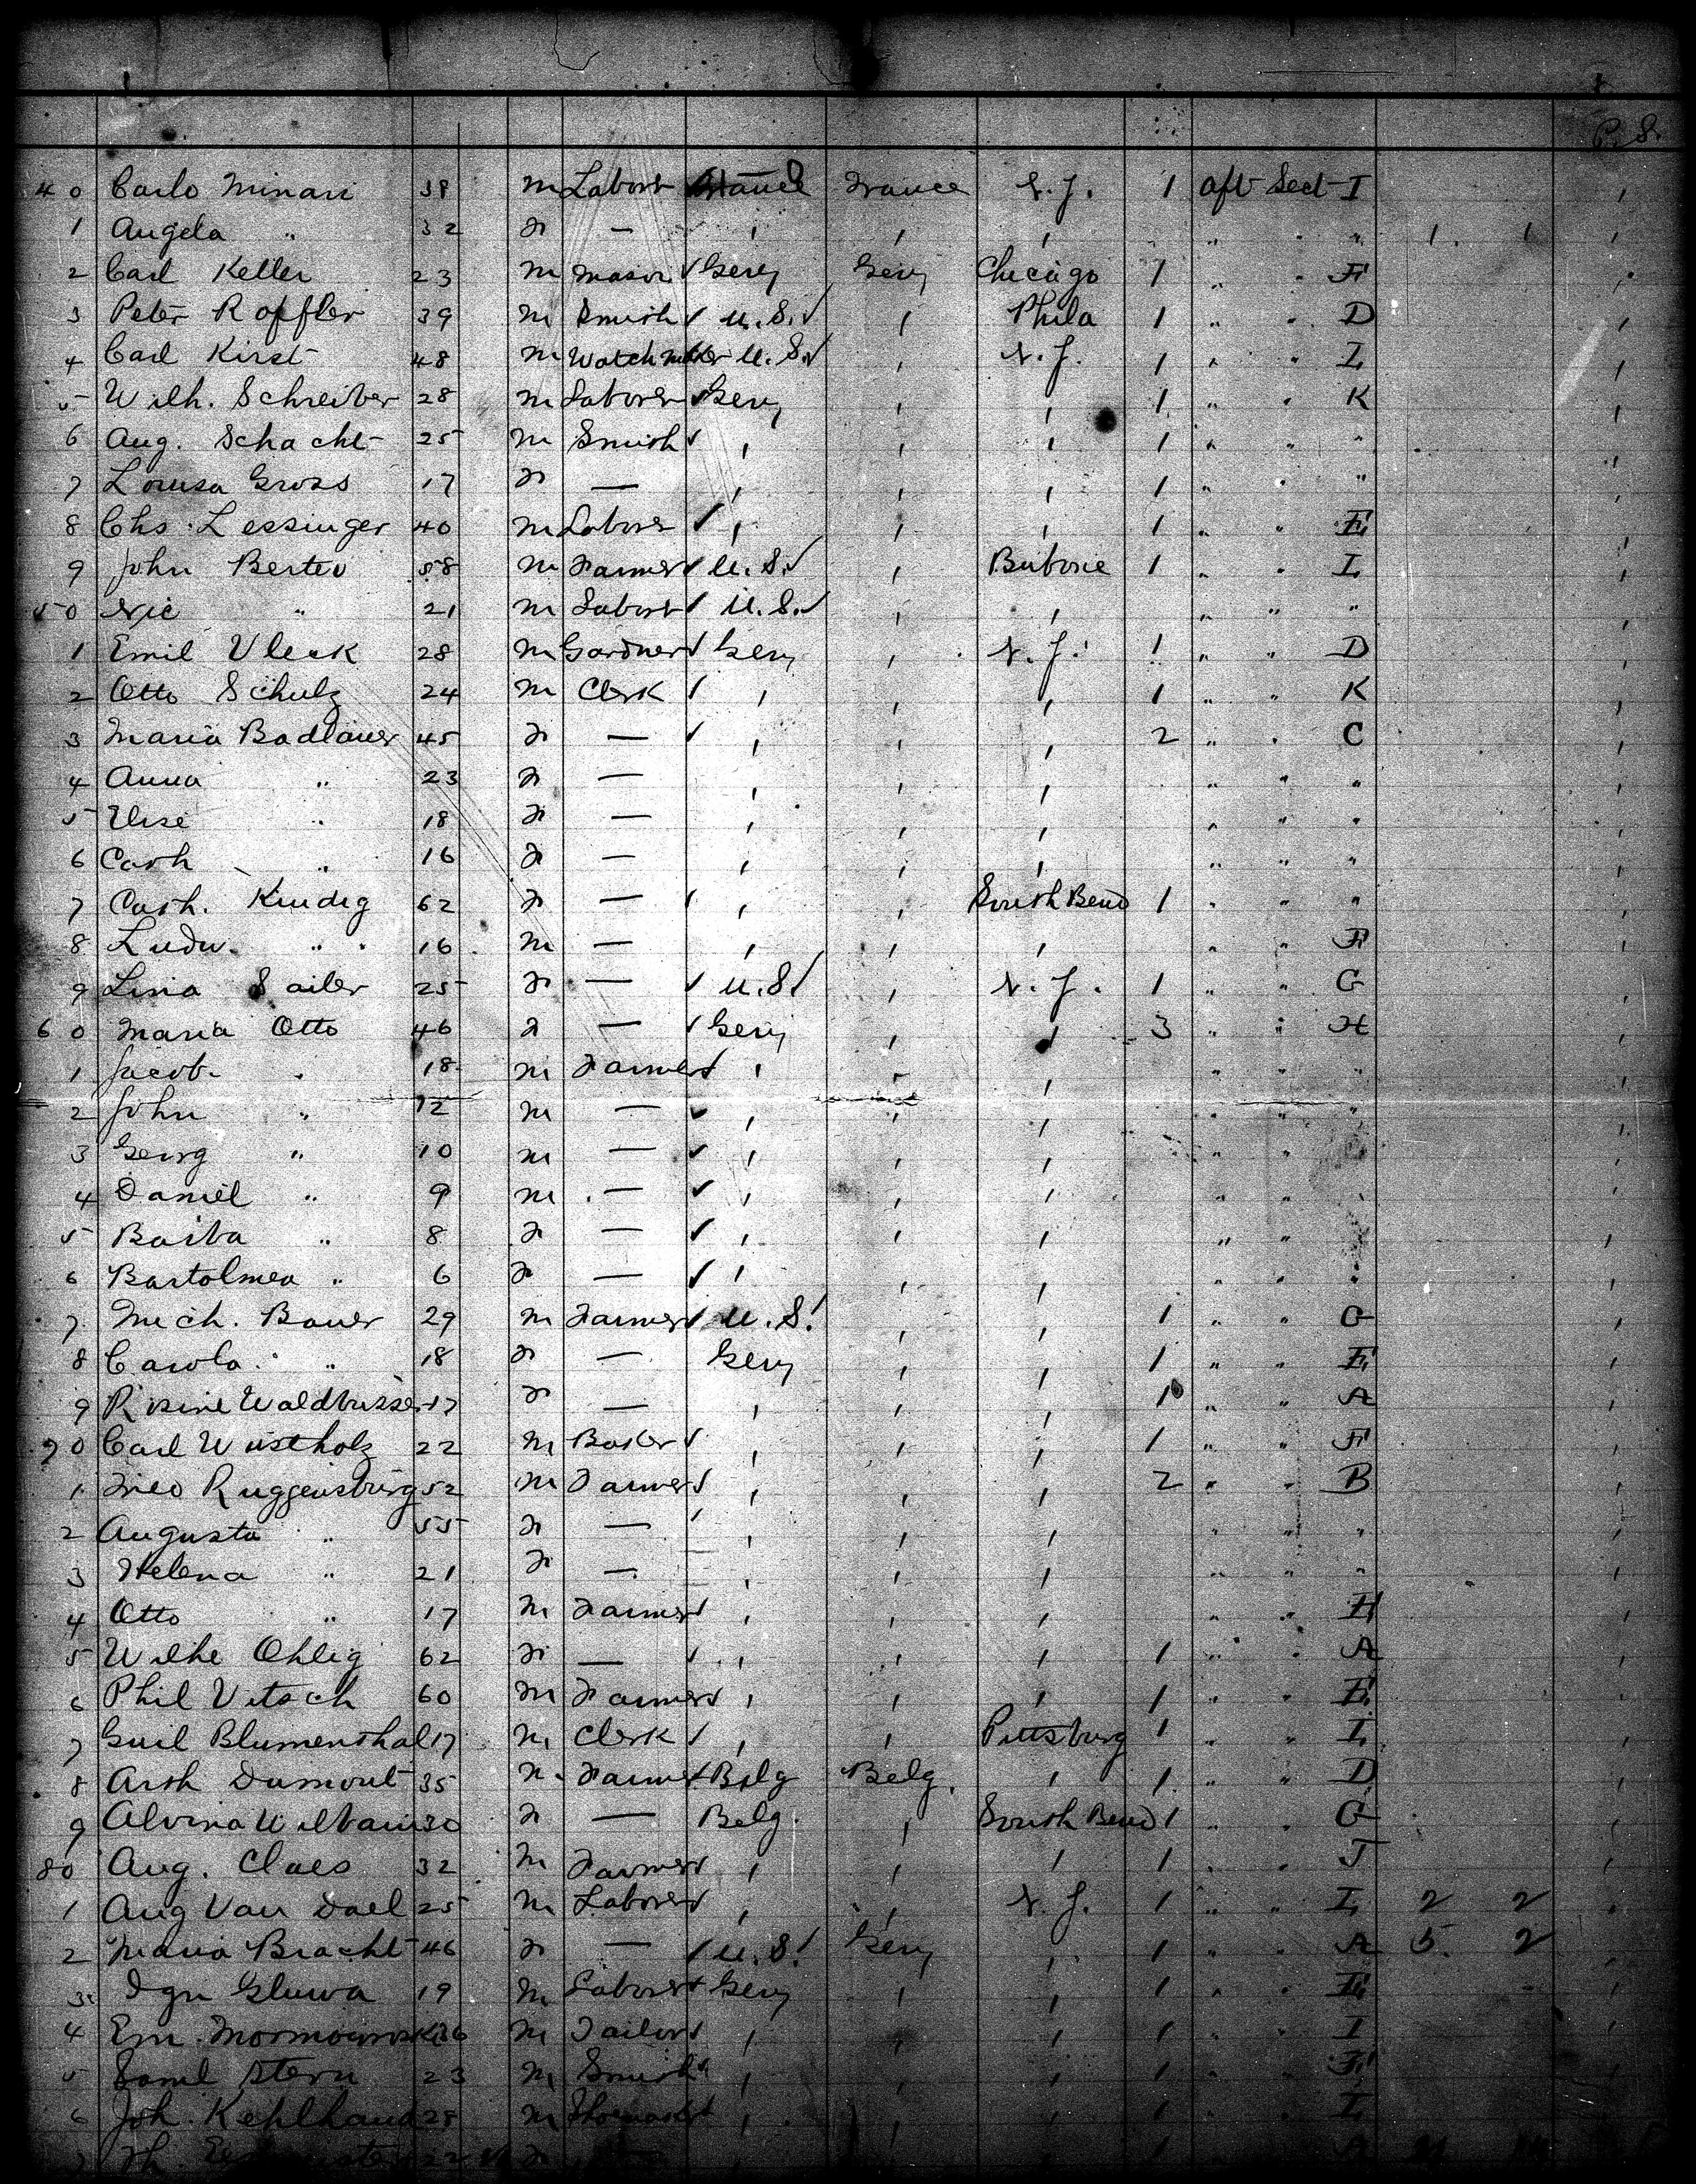 P. S.
40 Carlo Minari 38 m Labor France N.J. 1 aft Sect I
1 Angela " 32 F — , , , " " " 1. 1
2 Carl Keller 23 m Mason Gery Gery Chicago 1 " " F
3 Peter Roffler 39 m Smith U.S. , Phila 1 " " D
4 Carl Kirst 48 m Watchmaker U.S. , N.J. 1 " " I
5 Wilh. Schreiber 28 m Laborer Gery , , 1 " " K
6 Aug. Schacht 25 m Smith , , , 1 " " "
7 Louisa Gross 17 F — , , , 1 " " "
8 Chs. Lessinger 40 m Laborer , , , 1 " " E
9 John Berteo 58 m Farmer U.S. , 1 " " I
50 Nic " 21 m Labor U.S. , , " "
1 Emil Uleck 28 m Gardner Gery , N.J. 1 " " D
2 Otto Schulz 24 m Clerk , , , 1 " " K
3 Maria Badlauer 45 F — , , 2 " " C
4 Anna " 23 F — , , , " " "
5 Elise " 18 F — , , , " " "
6 Cath " 16 F — , , , " " "
7 Cath. Kindig 62 F — , , South Bend 1 " " "
8 Ludw. " 16 m — , , , " " F
9 Lina Sailer 25 F — U.S. , N.J. 1 " " G
60 Maria Otto 46 F — Gery , , 3 " " H
1 Jacob " 18 m Farmer , , , " " "
2 John " 12 m — , , , " " "
3 Georg " 10 m — , , , " "
4 Daniel " 9 m — , , , " "
5 Barba " 8 F — , , , " "
6 Bartolmea " 6 F — , , , " " "
7 Mich. Bauer 29 m Farmer U.S. , , 1 " " G
8 Carola " 18 F — Gery , , 1 " " E
9 Rosine Waldbusser 17 F — , , , 1 " " A
70 Carl Wustholz 22 m Baker , , , 1 " " F
1 Ruggensburg 52 m Farmer , , , 2 " " B
2 Augusta " 55 F — , , , " " "
3 Helena " 21 F — , , , " " "
4 Otto " 17 m Farmer , , , " " H
5 Wilhe Ohlig 62 F — , , , 1 " " A
6 Phil Vitsch 60 m Farmer , , , 1 " " E
7 Guil Blumenthal 17 m Clerk , , Pittsburg 1 " " I
8 Arth Dumont 35 m Farmer Belg Belg. , 1 " " D
9 Alvina 30 F — Belg. , South Bend 1 " " G
80 Aug. Claes 32 m Farmer , , , 1 " " J
1 Aug Van Dael 25 m Laborer , , N.J. 1 " " I 2 2
2 Maria Bracht 46 F — U.S. Gery , 1 " " A 5. 2
3 Ign Gluwa 19 m Laborer Gery , , 1 " " E
4 Em. 36 m Tailor , , , 1 " " I
5 Saml Stern 23 m Smith , , , 1 " " F
6 Joh. Kehlhand 28 m , , , 1 " " I
7 22 F — 1 A